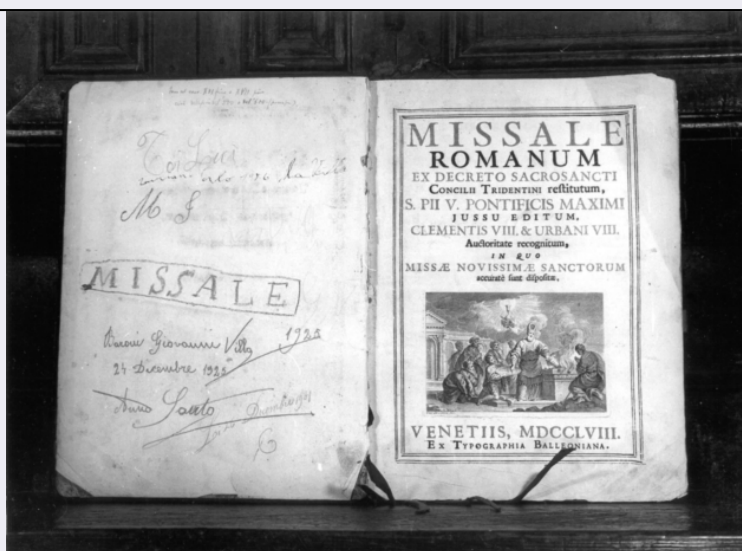 M S
MISSALE
Giovanni Villa 1925
24 Dicembre 1925
Anno Santo
MISSALE
ROMANUM
EX DECRETO SACROSANCTI
CONCILII TRIDENTINI restitutum,
S. PII V. PONTIFICIS MAXIMI
JUSSU EDITUM,
CLEMENTIS VIII. & URBANI VIII.
Auctoritate recognitum,
IN QUO
MISSÆ NOVISSIMÆ SANCTORUM
accuratè sunt dispositæ.
VENETIIS, MDCCLVIII.
EX TYPOGRAPHIA BALLEONIANA.